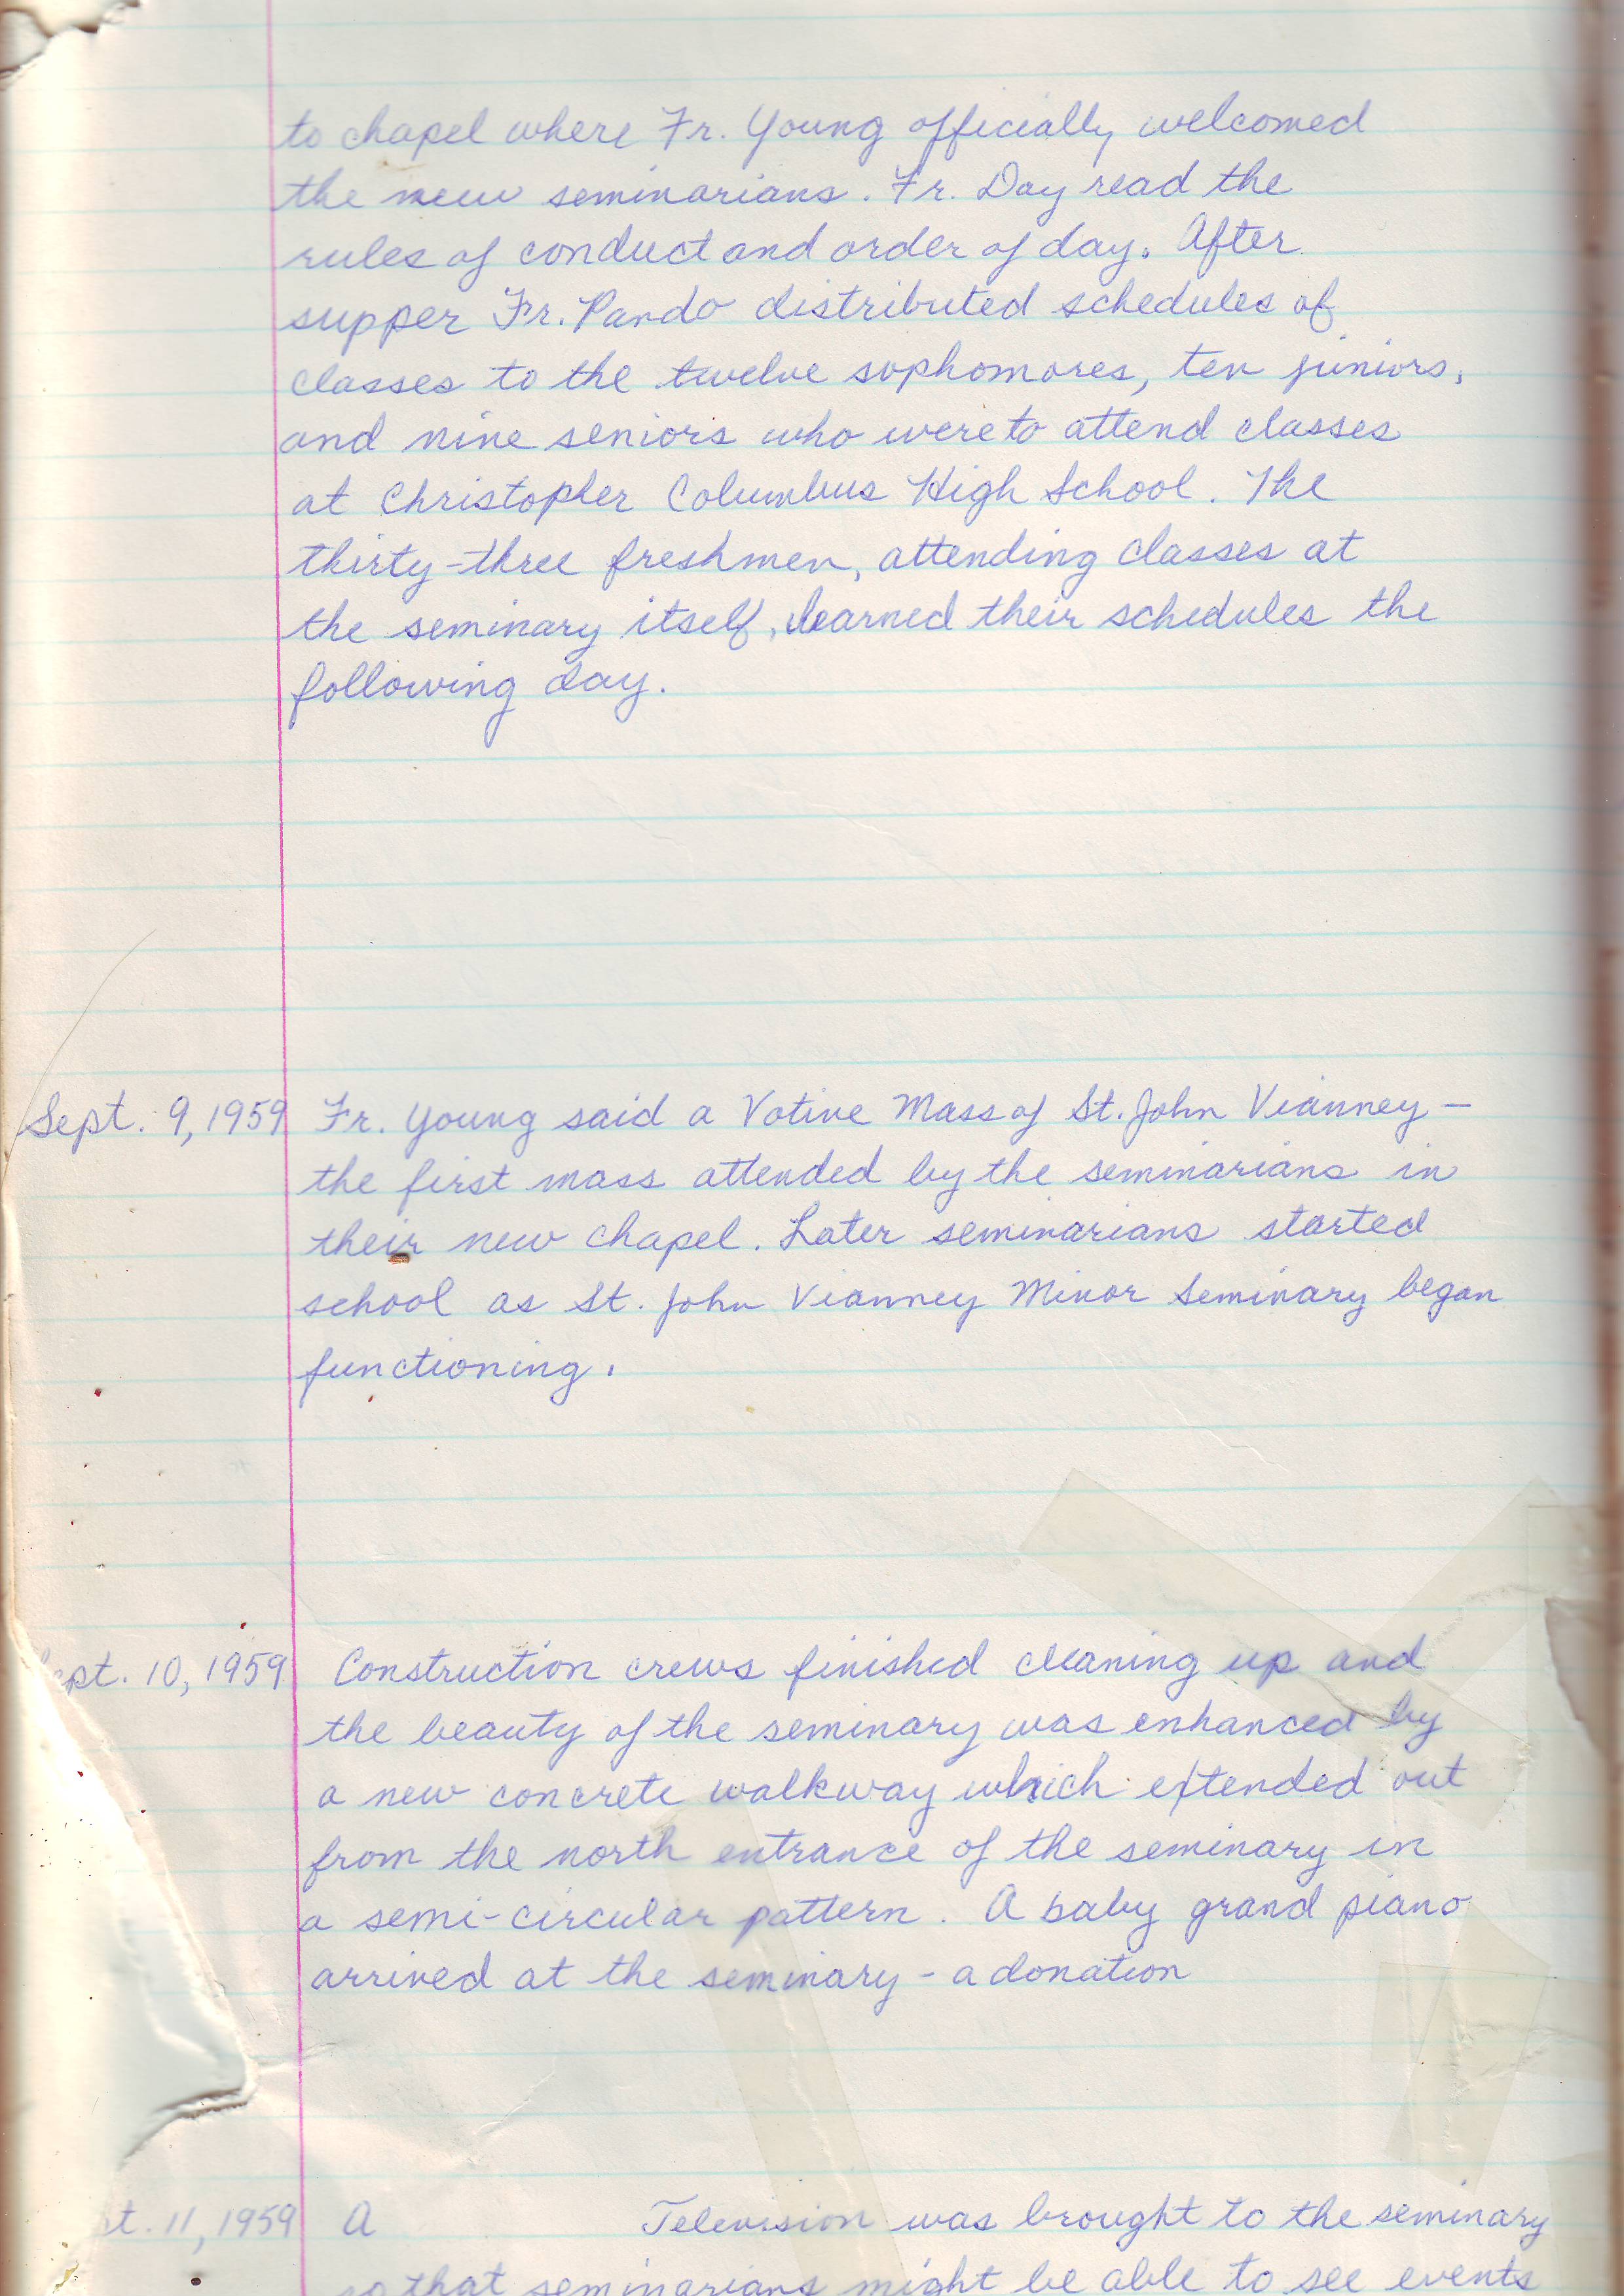 to chapel where Fr. Young officially welcomed
the new seminarians. Fr. Day read the
rules of conduct and order of day. After
supper Fr. Pando distributed schedules of
classes to the twelve sophomores, ten juniors,
and nine seniors who were to attend classes
at Christopher Columbus High School. The
thirty-three freshmen, attending classes at
the seminary itself, learned their schedules the
following day.
Sept. 9, 1959 Fr. Young said a Votive Mass of St. John Vianney –
the first mass attended by the seminarians in
their new chapel. Later seminarians started
school as St. John Vianney Minor Seminary began
functioning.
ept. 10, 1959 Construction crews finished cleaning up and
the beauty of the seminary was enhanced by
a new concrete walkway which extended out
from the north entrance of the seminary in
a semi-circular pattern. A baby grand piano
arrived at the seminary - a donation
t. 11, 1959 A Television was brought to the seminary
so that seminarians might be able to see events